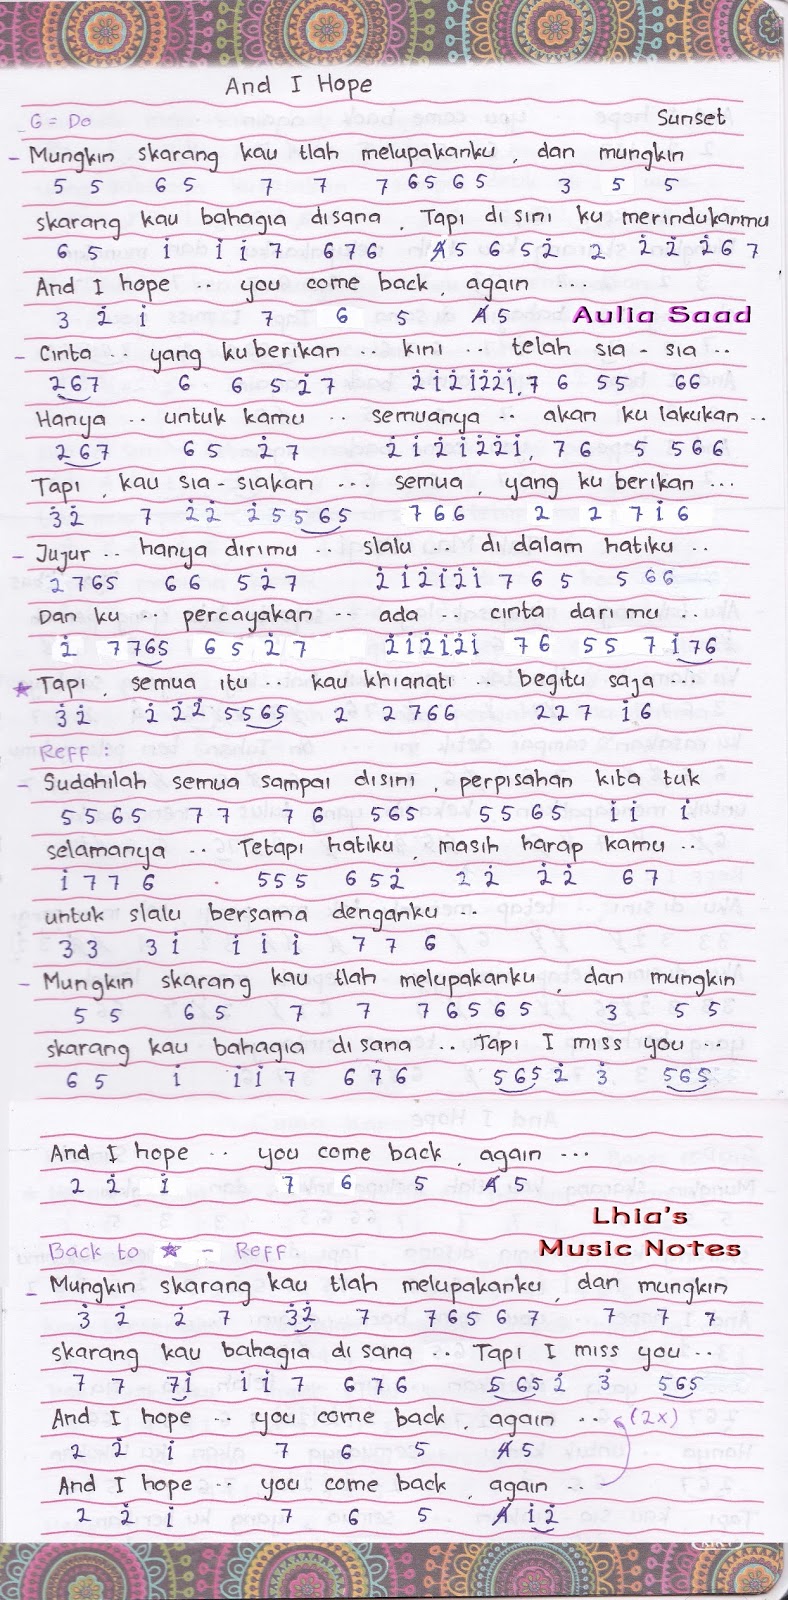 And I Hope
G = Do Sunset
- Mungkin skarang kau tlah melupakanku, dan mungkin
5 5 6 5 7 7 7 6 5 6 5 3 5 5
skarang kau bahagia disana, Tapi disini ku merindukanmu
6 5 i i i 7 6 7 6 4̸ 5 6 5 2̇ 2 2̇ 2̇ 2̇ 6 7
And I hope .. you come back, again ...
3 2̇ i 7 6 5 4̸ 5 Aulia Saad
- Cinta .. yang kuberikan .. kini .. telah sia - sia ..
2 6 7 6 6 5 2̇ 7 2̇ i 2̇ i 2̇ 2̇ i, 7 6 5 5 6 6
Hanya .. untuk kamu .. semuanya .. akan ku lakukan ..
2 6 7 6 5 2̇ 7 2̇ i 2̇ i 2̇ 2̇ i, 7 6 5 5 6 6
Tapi, kau sia-siakan ... semua, yang ku berikan ...
3̇ 2̇ 7 2̇ 2̇ 2̇ 5 5 6 5 7 6 6 2 2 7 i 6
- Jujur .. hanya dirimu .. slalu .. di dalam hatiku ..
2 7 6 5 6 6 5 2̇ 7 2̇ i 2̇ i 2̇ i 7 6 5 5 6 6
Dan ku .. percayakan .. ada .. cinta darimu ..
2̇ 7 7 6 5 6 5 2̇ 7 2̇ i 2̇ i 2̇ i 7 6 5 5 7 i 7 6
★ Tapi, semua itu .. kau khianati .. begitu saja ...
3̇ 2̇ 2̇ 2̇ 2̇ 5 5 6 5 2 2 7 6 6 2 2 7 i 6
Reff :
- Sudahilah semua sampai disini, perpisahan kita tuk
5 5 6 5 7 7 7 6 5 6 5 5 5 6 5 i i i
selamanya .. Tetapi hatiku, masih harap kamu ..
i 7 7 6 . 5 5 5 6 5 2̇ 2 2̇ 2̇ 2̇ 6 7
untuk slalu bersama denganku ..
3 3 3 i i i i 7 7 6
- Mungkin skarang kau tlah melupakanku, dan mungkin
5 5 6 5 7 7 7 6 5 6 5 3 5 5
skarang kau bahagia disana .. Tapi I miss you ..
6 5 i i i 7 6 7 6 5 6 5 2̇ 3 5 6 5
And I hope .. you come back, again ...
2 2̇ i 7 6 5 4̸ 5
Lhia's
Back to ★ - Reff Music Notes
- Mungkin skarang kau tlah melupakanku, dan mungkin
3̇ 2̇ 2̇ 7 3̇ 2̇ 7 7 6 5 6 7 7 7 7
skarang kau bahagia disana .. Tapi I miss you ..
7 7 7 i i i 7 6 7 6 5 6 5 2̇ 3̇ 5 6 5
And I hope .. you come back, again .. (2x)
2 2̇ i 7 6 5 4̸ 5
And I hope .. you come back, again ..
2 2̇ i 7 6 5 4̸ i 2̇
KIKY